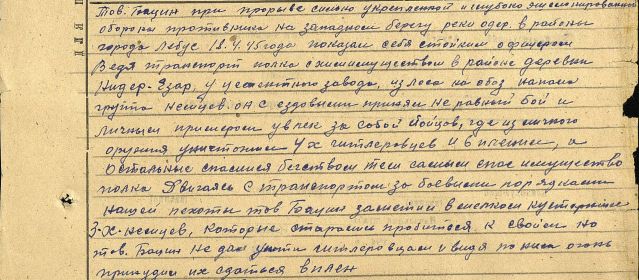 Тов. Бацин при прорыве сильно укрепленной и глубоко эшелонированной
обороны противника на западном берегу реки одер. в районы
города Лебус 18.4.45 года показал себя стойким офицером
Ведя транспорт полка с химимуществом в районе деревни
Нидер-Езар, у цементного завода, из леса на обоз напала
группа немцев. он с ездовыми принял не равный бой и
личным примером увлек за собой бойцов, где из личного
оружия уничтожил 4х гитлеровцев и 6 пленил, а
остальные спаслися бегством тем самым спас имущество
полка Двигаясь с транспортом за боевыми порядками
нашей пехоты тов Бацин заметил в мелком кустарнике
3-х-немцев, которые старались пробиться к своим но
тов. Бацин не дал уйти гитлеровцам и видя по ним огонь
принудил их сдаться в плен